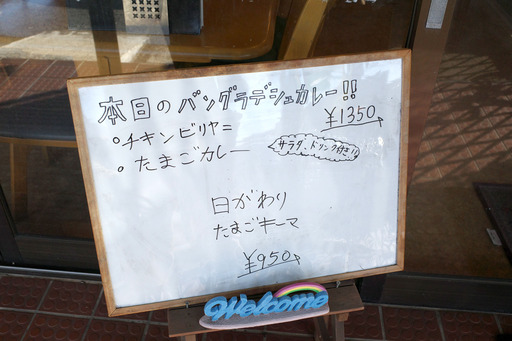 本日のバングラデシュカレー!!
¥1350
。チキンビリヤニ
。たまごカレー
サラダ、ドリンク付き!!
日がわり
たまごキーマ
¥950
Welcome